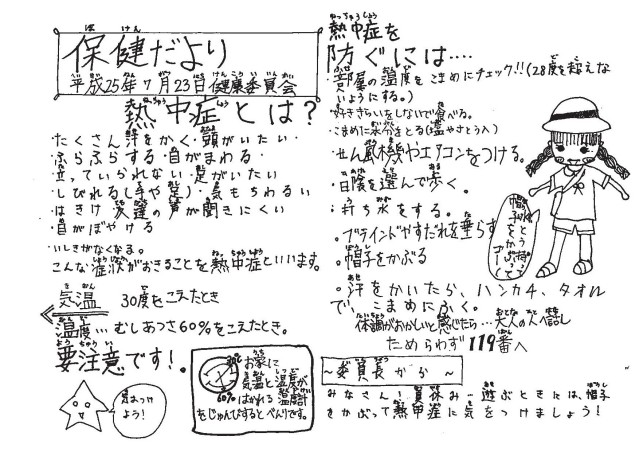 保健だより
平成25年7月23日健康委員会
熱中症とは?
たくさん汗をかく・頭がいたい・
ふらふらする・目がまわる・
立っていられない・足がいたい
しびれる(手や足)・気もちわるい
はきけ 友達の声が聞きにくい
・目がぼやける
・いしきがなくなる。
こんな症状がおきることを熱中症といいます。
気温 30度をこえたとき
湿度…むしあつさ60%をこえたとき。
要注意です!。
気おつけよう!
お家に
気温と湿度が
はかれる温度計
をじゅんびするとべんりです。
30℃
60%
熱中症を
防ぐには‥‥
・部屋の温度をこまめにチェック!!(28度を超えな
いようにする。)
・好ききらいをしないで食べる。
・こまめに水分をとる(塩やさとう入)
・せん風機やエアコンをつける。
・日陰を選んで歩く。
・打ち水をする。
・ブラインドやすだれを垂らす
・帽子をかぶる
・汗をかいたら、ハンカチ、タオル
で、こまめにふく。
体調がおかしいと感じたら…大人の人へ話し
ためらわず119番へ
～委員長から～
みなさん!夏休み…遊ぶときには、帽子
をかぶって熱中症に気をつけましょう!